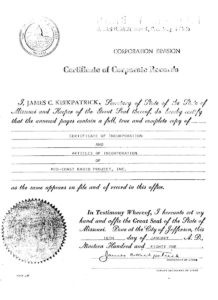 CORPORATION DIVISION
Certificate of Corporate Records
I, JAMES C. KIRKPATRICK, Secretary of State of the State of
Missouri and Keeper of the Great Seal thereof, do hereby certify
that the annexed pages contain a full, true and complete copy of
CERTIFICATE OF INCORPORATION
AND
ARTICLES OF INCORPORATION
OF
MID-COAST RADIO PROJECT, INC.
as the same appears on file and of record in this office.
In Testimony Whereof, I hereunto set my
hand and affix the Great Seal of the State of
Missouri. Done at the City of Jefferson, this
day of JANUARY A. D.,
Nineteen Hundred and EIGHTY ONE
James C Kirkpatrick